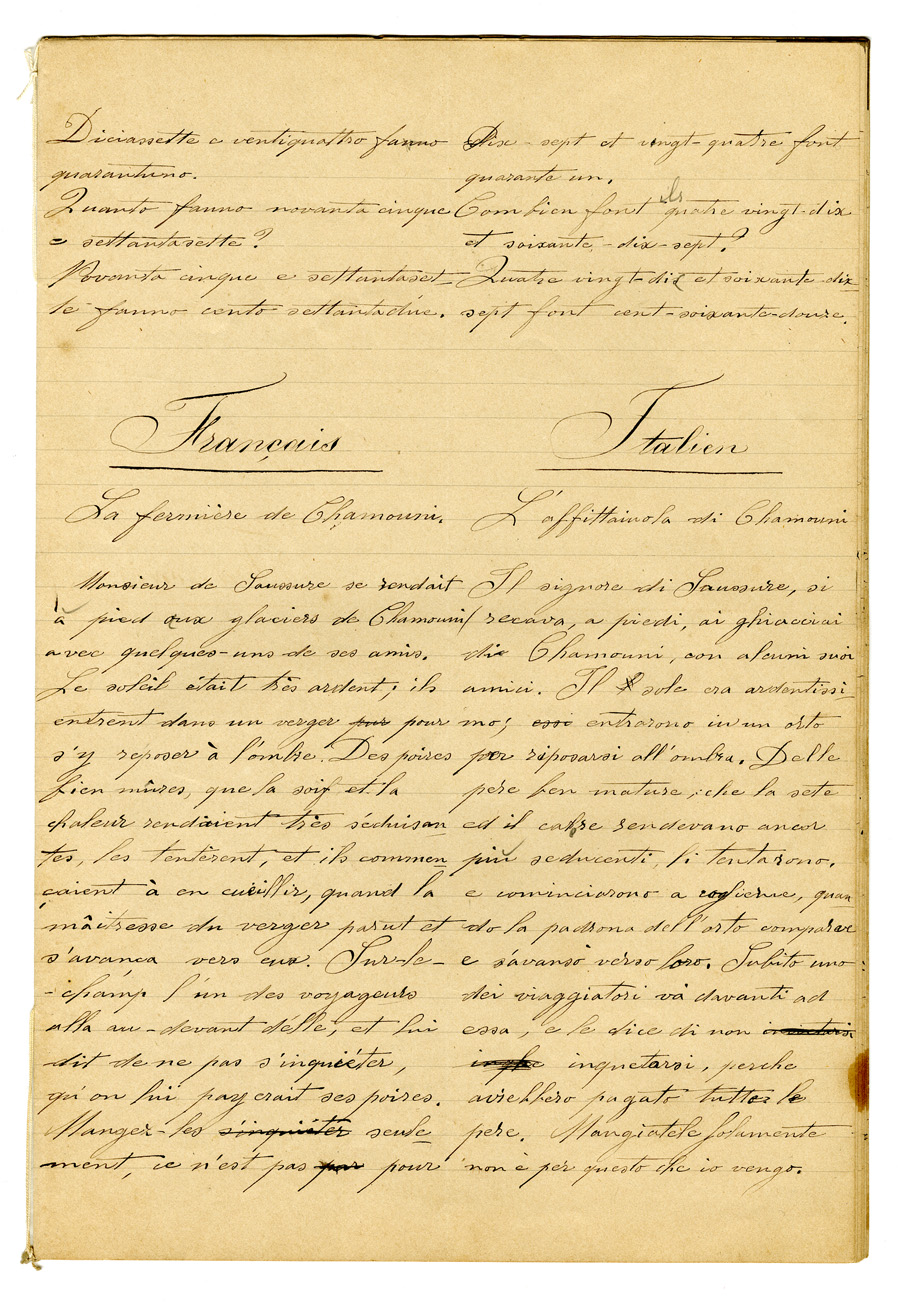 Diciassette e ventiquattro fanno
quarantuno.
Quanto fanno novanta cinque
e settantasette?
Novanta cinque e settantaset-
te fanno cento settantadúe.
Dix-sept et vingt-quatre font
quarante un.
Combien font ils quatre vingt-dix
et soixante-dix-sept?
Quatre vingt-dix et soixante dix-
sept font cent-soixante-douze.
Français
La fermière de Chamouni.
Monsieur de Saussure se rendait
à pied aux glaciers de Chamouni
avec quelques-uns de ses amis.
Le soleil était très ardent; ils
entrent dans un verger pour
s'y reposer à l'ombre. Des poires
bien mûres, que la soif et la
chaleur rendaient très séduisan
tes, les tentèrent, et ils commen
çaient à en cueillir, quand la
mâitresse du verger parut et
s'avança vers eux. Sur-le-
-champ l'un des voyageurs
alla au-devant d'élle, et lui
dit de ne pas s'inquiéter,
qu'on lui payerait ses poires.
Mangez-les s'inquiéter seule
ment, ce n'est pas par pour
Italien
L'affittaivola di Chamouni
Il signore di Saussure, si
recava, a piedi, ai ghiacciai
di Chamouni, con alcuni suoi
amici. Il sole era ardentissi
mo; essi entrarono in un orto
per riposarsi all'ombra. Delle
pere ben mature, che la sete
ed il calore rendevano ancor
più seducenti, li tentarono,
e cominciarono a coglierne, quan
do la padrona dell'orto comparve
e s'avansò verso loro. Subito uno
dei viaggiatori và davanti ad
essa, e le dice di non
inquetarsi, perche
avrebbero pagato tutte le
pere. Mangiatele solamente
non è per questo che io vengo.